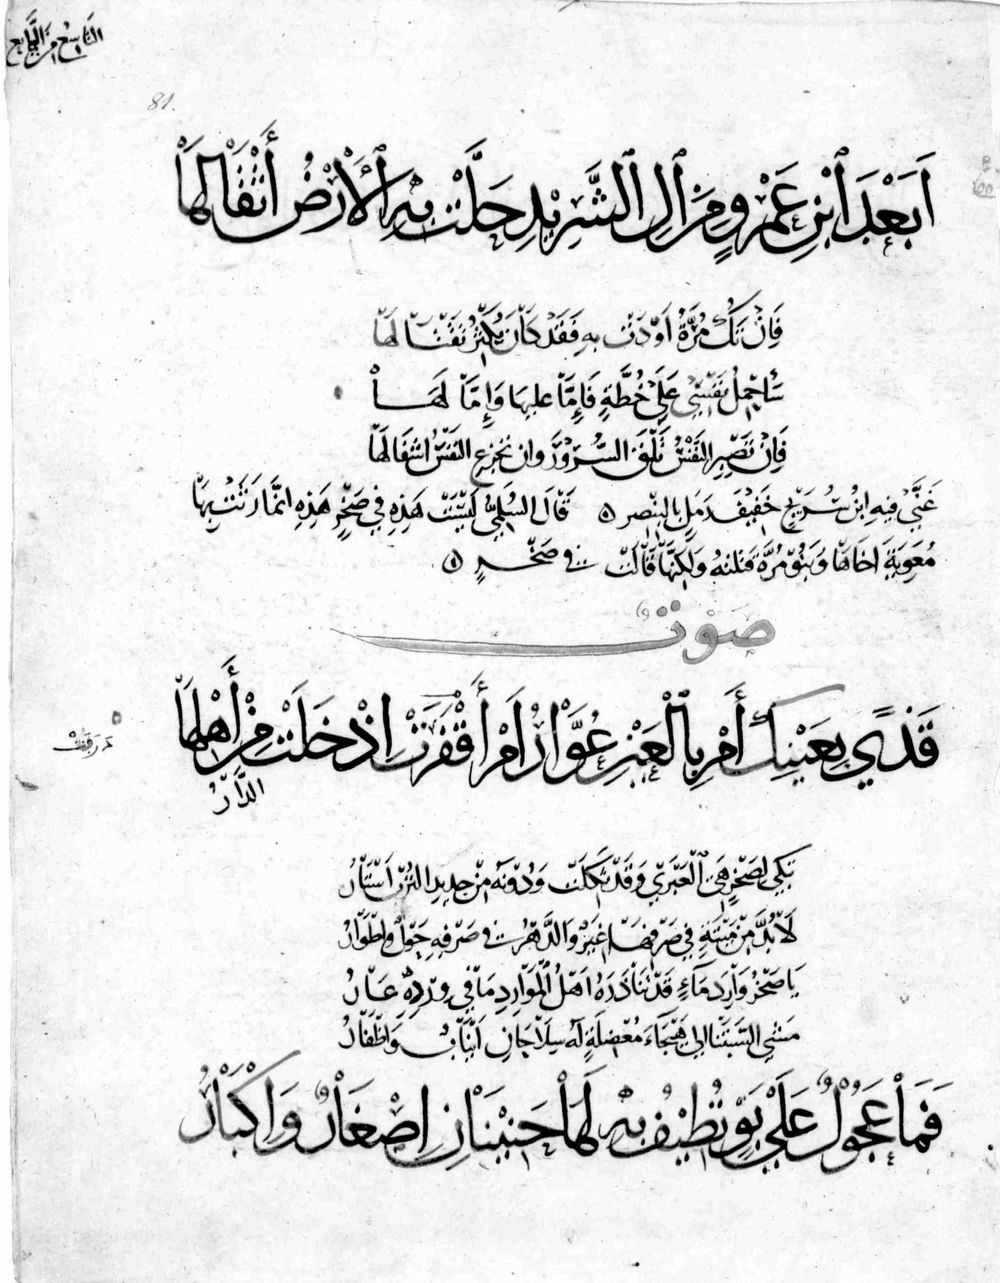 التاسع من
81.
اَبَعْدَ ٱبْنِ عَمْرٍو مِنَ ٱلِ ٱلشَّرِيْدِ حَلَّتْ بِهِ ٱلْأَرْضُ أَثْقَالَهَا
فَاِنْ تَكُ مُرَّةُ اَوْدَتْ بِهِ فَقَدْ كَانَ يُكَثِّرُ تَقْتَالَهَا
سَاَحْمِلُ نَفْسِي عَلَى خُطَّةٍ فَاِمَّا عليها وَاِمَّا لَهَا
فَاِنْ تَصْبِرِ النَّفْسُ تَلْقَ السُّرُوْرَ وان تجزع النَّفْسُ اَشْقَالَهَا
غَنَّى فيهِ ابنُ سُرَيْجٍ خَفِيْفَ رَمَلٍ بالبنصر ۞ قَالَ السُّلَمِيُّ لَيْسَتْ هَذِهِ فِي صَخْرٍ هَذِهِ انمَّا رَثَتْ بِهَا
مُعَوِيَةَ اَخَاهَا وَبَنُوْ مُرَّةَ قتلته وَلكِنَّهَا قَالَتْ في صَخْرٍ ۞
صَوْت
قَذًى بِعَيْنِكِ أَمْ بِالْعَيْنِ عُوَّارُ اَمْ أَقْفَرَتْ اِذْ خَلَتْ مِنْ أَهْلِهَا
الدَّارُ
تَبْكِي لِصَخْرٍ هِيَ ٱلْعَبْرَى وَقَدْ ثَكِلَتْ وَدُوْنَهُ مِنْ جَدِيدِ التُّرْبِ اَسْتَارُ
لَابُدَّ مِنْ مِيْتَةٍ فِي صَرْفِهَا غِيَرٌ وَالدَّهْرُ في صَرْفِهِ حَوْلٌ وَاَطْوَارُ
يَا صَخْرُ وَارِدَ مَاءٍ قَدْ تَنَاذَرَهُ اَهْلُ الْمَوَارِدِ مَا فِي وِرْدِهِ عَارُ
مَشْيَ السَّبَنْتَا الى هَيْجَاءَ مُعْضِلَةٍ لَهُ سِلَاحَانِ اَنْيَابٌ وَاَظْفَارُ
فَمَا عَجُوْلٌ عَلَى بَوٍّ تُطِيْفُ بِهِ لَهَا حَنِيْنَانِ اِصْغَارٌ وَاِكْبَارُ